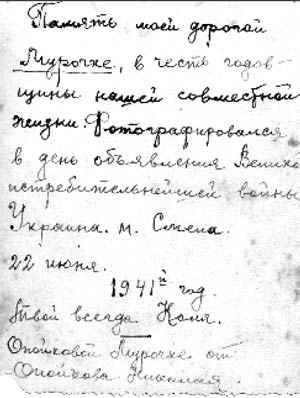 Память моей дорогой
Мурочке, в честь годов-
щины нашей совместной
жизни. Фотографировался
в день объявления Велико
истребительнейшей войны
Украина. м. Смела.
22 июня.
1941й год.
Твой всегда Коля.
Опойковой Мурочке от
Опойкова Николая.